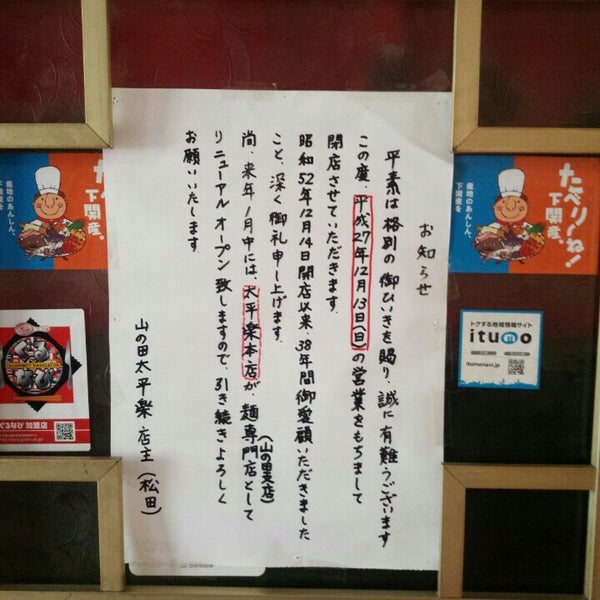 お知らせ
平素は格別の御ひいきを賜り、誠に有難うございます
この度、平成27年12月13日(日)の営業をもちまして
閉店させていただきます。
昭和52年12月14日開店以来、38年間御愛顧いただきました
こと、深く御礼申し上げます。
(山の田店)
尚、来年1月中には、太平楽本店が、麺専門店として
リニューアルオープン致しますので、引き続きよろしく
お願いいたします。
山の田太平楽 店主(松田)
たべりーね!
下関産。
産地のあんしん、
下関産を
たべ
下関産。
産地のあんしん、
下関産を
トクする地域情報サイト
itumo
itumonavi.jp
ぐるなび 加盟店